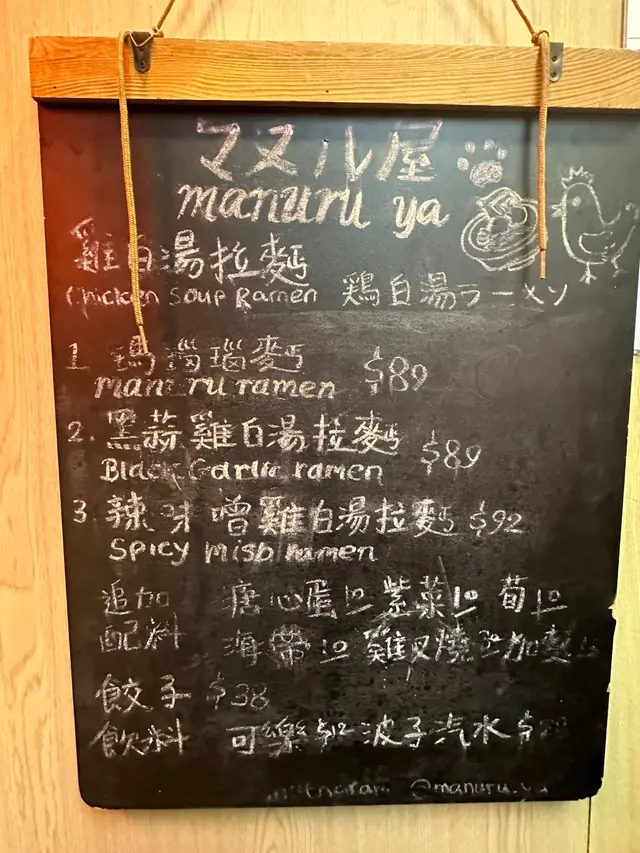 マヌル屋
manuru ya
雞白湯拉麵
Chicken Soup Ramen 鶏白湯ラーメン
1. 瑪瑙瑙麵 $89
manuru ramen
2. 黑蒜雞白湯拉麵 $89
Black Garlic ramen
3 辣味噌雞白湯拉麵 $92
Spicy miso ramen
追加 溏心蛋10 紫菜10 荀10
配料 海帶10 雞叉燒30 加麵
餃子 $38
飲料 可樂$12 波子汽水
instagram @manuru.ya